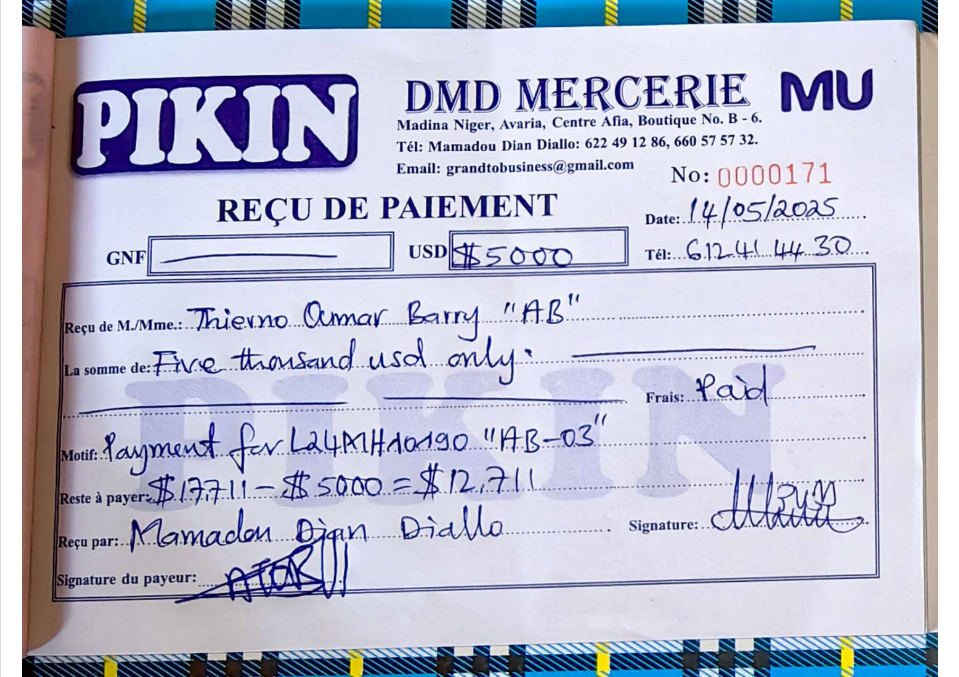 PIKIN
DMD MERCERIE
MU
Madina Niger, Avaria, Centre Afia, Boutique No. B - 6.
Tél: Mamadou Dian Diallo: 622 49 12 86, 660 57 57 32.
Email: grandtobusiness@gmail.com
No: 0000171
REÇU DE PAIEMENT
Date: 14/05/2025
GNF
USD $5000
Tél: 612 41 44 30
Reçu de M./Mme.: Thierno Oumar Barry "AB"
La somme de: Five thousand usd only.
Frais: Paid
PIKIN
Motif: Payment for L24MH10190 "AB-03"
Reste à payer: $17,711 - $5000 = $12,711
Reçu par: Mamadou Djan Diallo
Signature:
Signature du payeur: